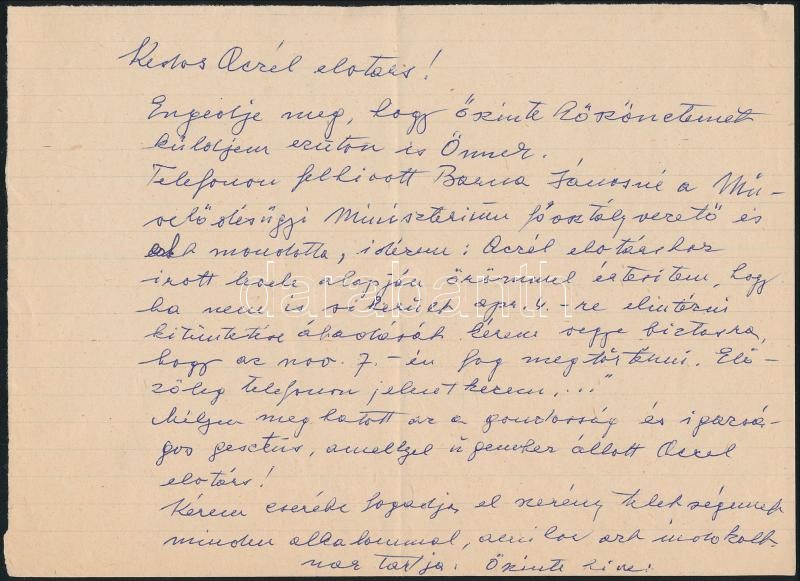 Kedves Aczél elvtárs!
Engedje meg, hogy őszinte köszönetemet
küldjem ezúton is Önnek.
Telefonon felhivott Barna Jánosné a Mü-
velődésügyi Minisztérium főosztályvezető és
azt mondotta, idézem: Aczél elvtárshoz
irott levele alapján örömmel értesitem, hogy
ha nem is sikerült ápr. 4.-re elintézni
kitüntetése átadását kérem vegye biztosra,
hogy az nov. 7.-én fog megtörténni. Elő-
zőleg telefonon jelentkezem,..."
Mélyen meghatott az a gondosság és igazsá-
gos gesztus, amellyel ügyemben állott Aczél
elvtárs!
Kérem cserébe fogadja el szerény tehetségemet
minden alkalommal, amikor azt indokolt-
nak tartja. Őszinte hive:
darabanth